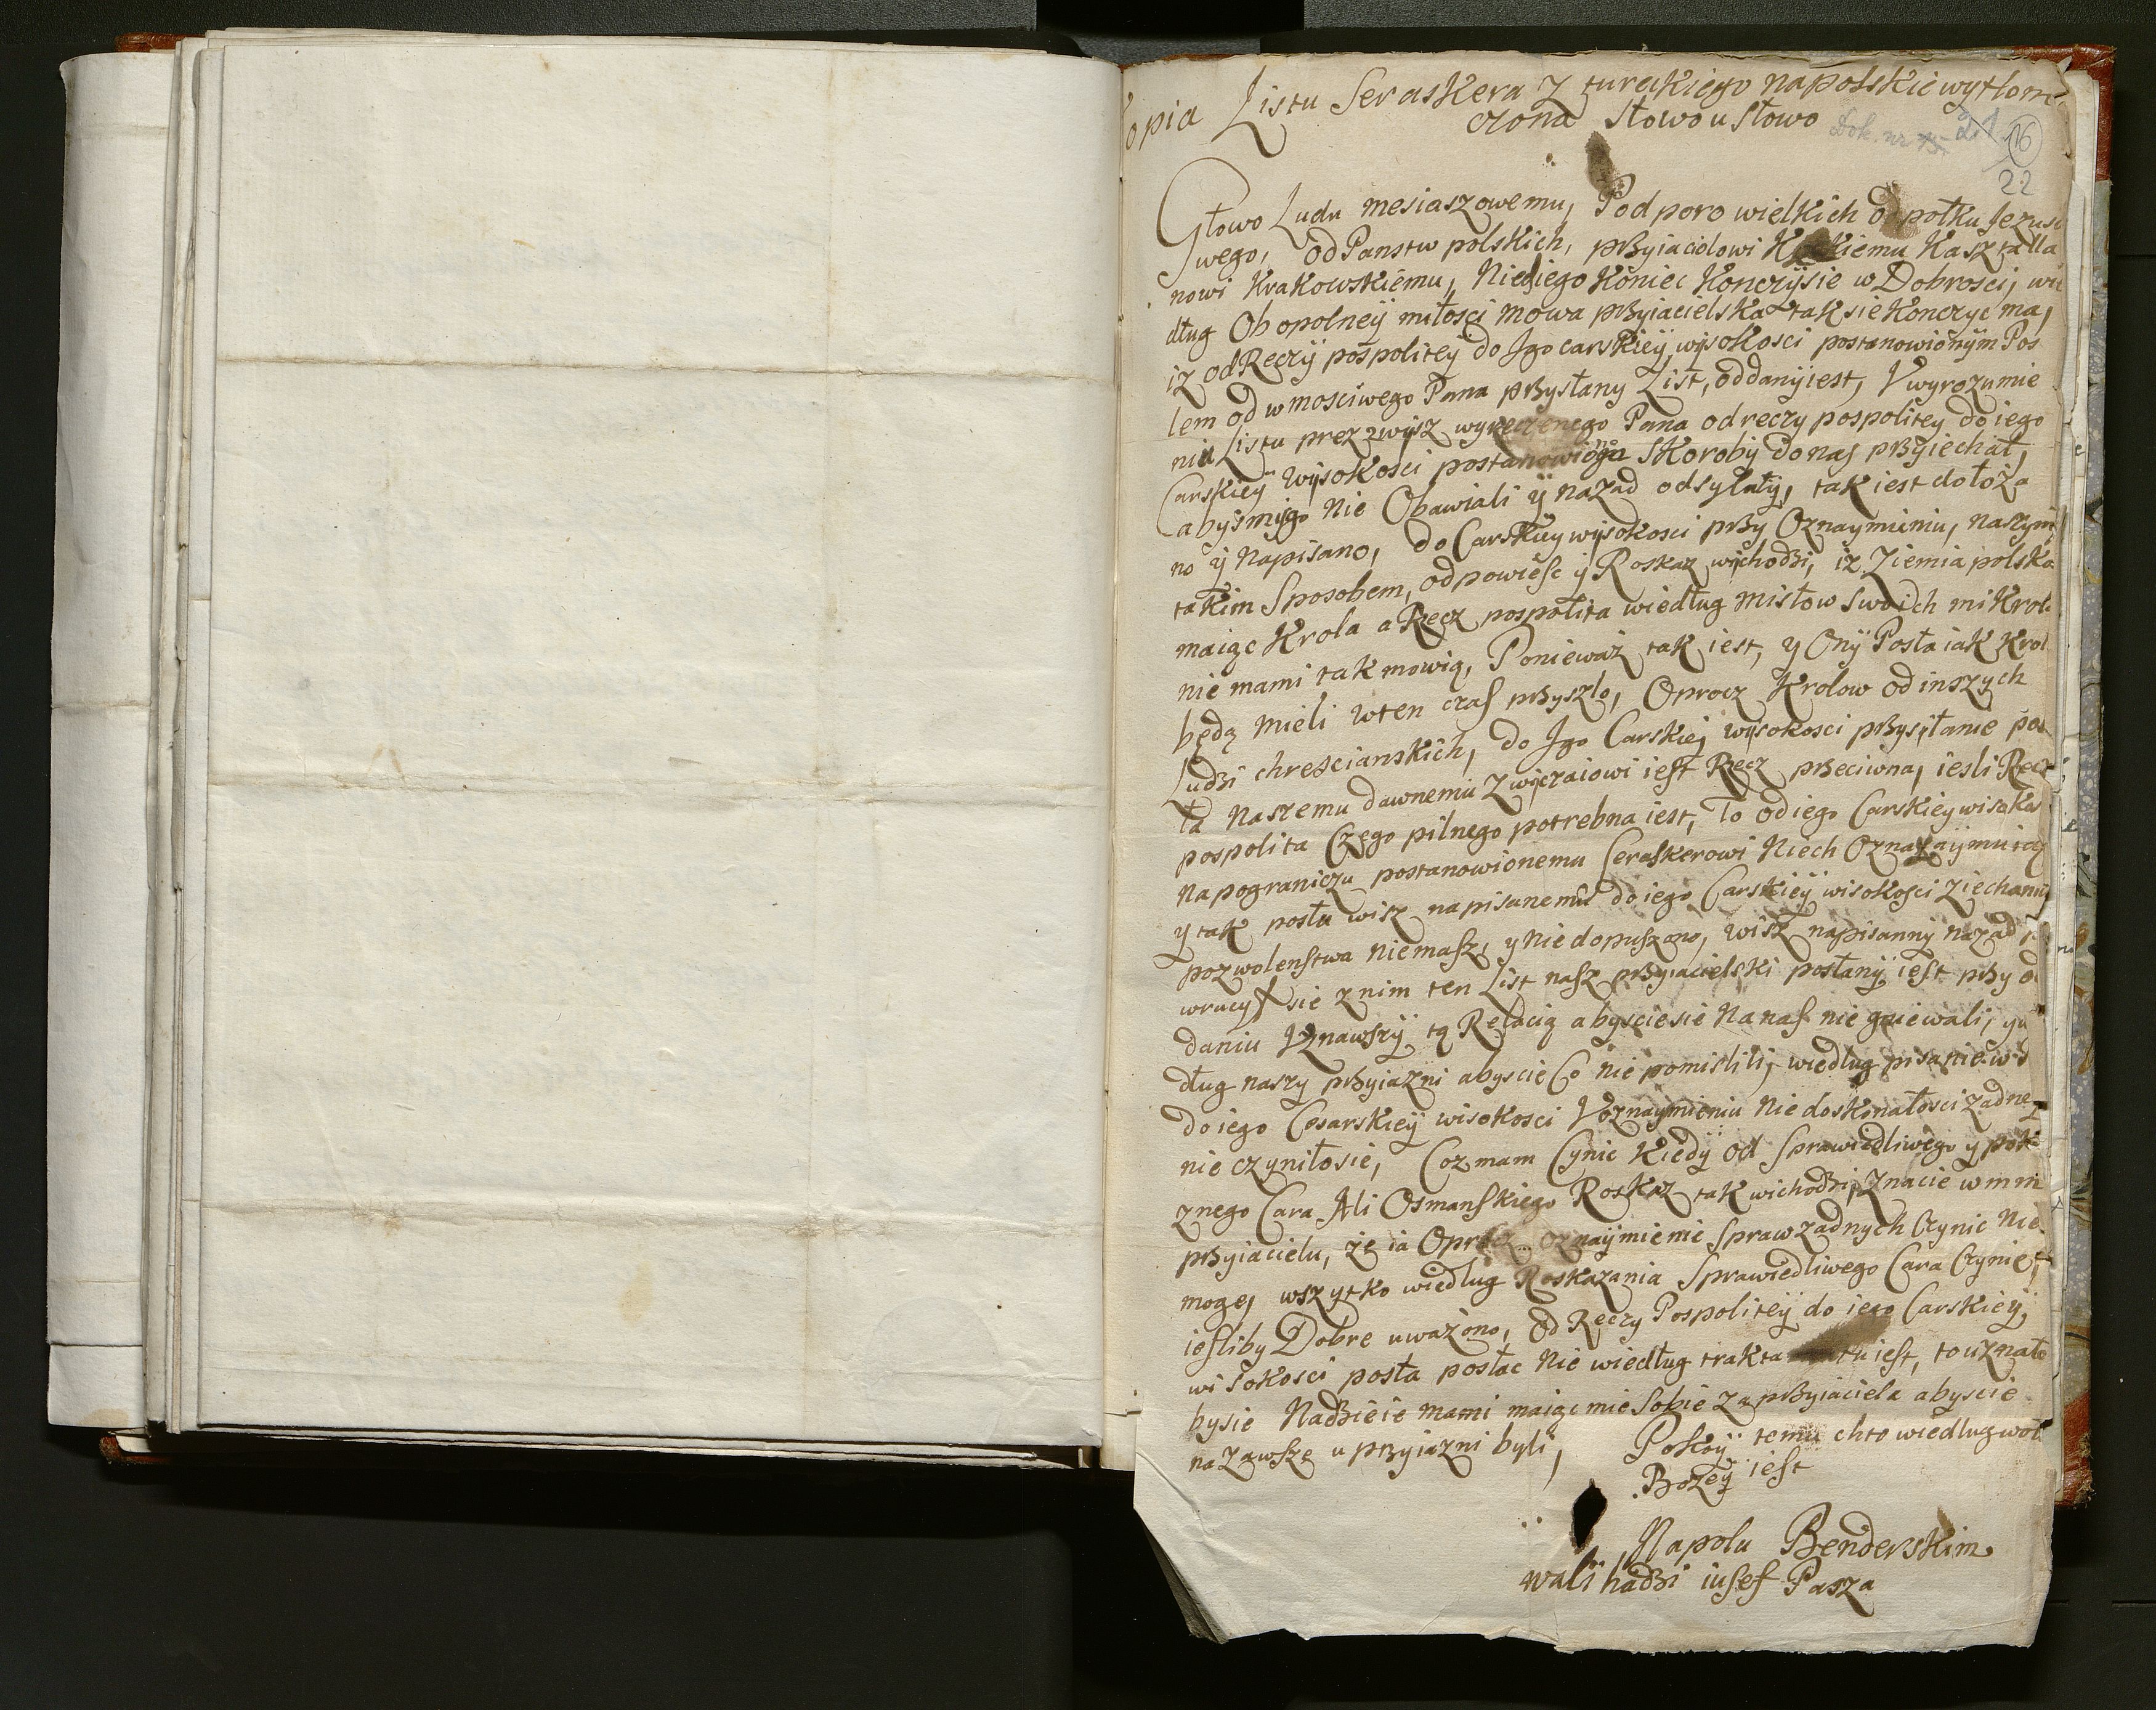 opia Listu Seraskera z tureckiego na polskie wytlom
czona Słowo u Słowo
Dok. nr 21
16
22
Głowo Ludu mesiaszowemu, Podporo wielkich od połku Jezuso
wego, od Panstw polskich, przyiacielowi Kasztalla
nowi Krakowskiemu, Niech iego Koniec Konczy sie w Dobrosci, wie
dług Obopolneÿ miłosci mowa przyiacielska tak sie Konczyc ma,
iz od Reczÿ pospolitey do Jgo carskieÿ wysokosci postanowionÿm Pos
lem od w mosciwego Pana przysłany List, oddany iest, Vwyrozumie
niu Listu prez zwysz wyreczenego Pana od reczy pospolitey do iego
Carskieÿ Wysokosci postanowiono Skoroby do nas przyiechał,
abysmy go nie Obawiali ÿ nazad odsyłaty, tak iest dołoża
no ÿ napisano, do Carskiey wysokosci przy Oznaymieniu, naszym
takim Sposobem, odpowiesc y Roskaz wychodzi, iz Ziemia polska
maiąc Krola a Rzecz pospolita według mislow Swoich mi Krola
nie mami tak mowią, Ponieważ tak iest, y Onÿ Posła iak Krol
będą mieli w ten czas przyszlo, Oprocz Krolow od inszych
Ludzi chrescianskich, do Jgo Carskiej wysokosci przysyłanie pos
la naszemu dawnemu zwyczaiowi iest Rzecz przeciwna, iesli Recz
pospolita Czego pilnego potrebna iest, To od iego Carskiey wisokos
na pograniczu postanowionemu Seraskerowi Niech Oznayaÿmuią
y tak posłu wisz napisanemu do iego Carskieÿ wisokosci Ziechaniu
pozwolenstwa niemasz, y niedopuszczono, wisz napisanny nazad
wracy sie z nim ten List nasz przyiacielski posłanÿ iest przy od
daniu Vznawszÿ tą Relacią abyscie sie na nas nie gniewali, y we
dług naszy przyiazni abyscie Co nie pomislili, wiedlug pisanie w
do iego Cesarskieÿ wisokosci Voznaÿmieniu Niedoskonałosci zadneÿ
nie czyniło sie, Coz mam Cynic Kiedÿ od Sprawiedliwego y pot
znego Cara Ali Osmanskiego Roskaz tak wichodzi, Znacie w m m
przyiacielu, że ia Oprocz oznaÿmienie Spraw zadnych Czynic Nie
mogę, wszytko wiedlug Roskazania Sprawiedliwego Cara Czynie,
iesliby Dobre uważono, od Reczy Pospoliteÿ do iego Carskieÿ
wisokosci posła posłac Nie wiedług trakta iest, to uznało
by sie Nadzieie mami maiąc mie Sobie za przyiaciela abyscie
na zawsze u przyiazni byli, Pokoÿ temu chto wiedlug woli
Bożeÿ iest
Na polu Benderskim
wali hadzi iusef Pasza